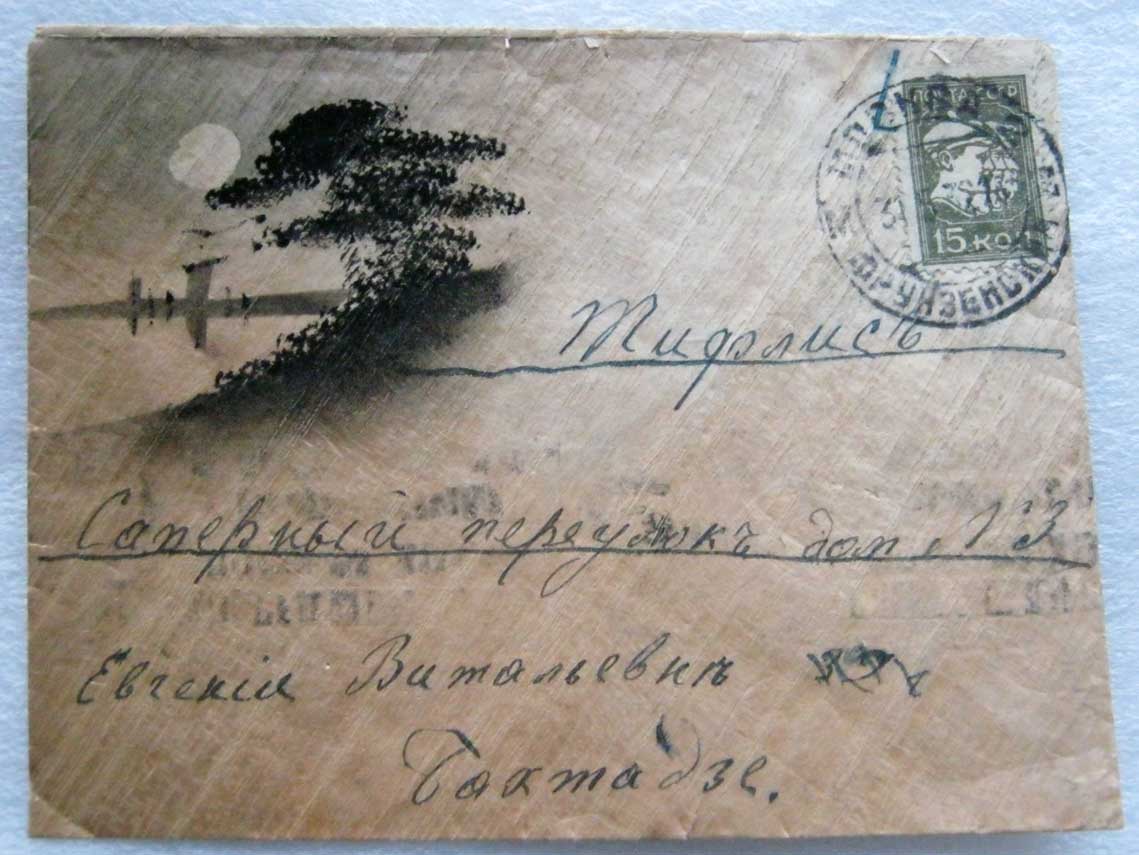 ПОЧТА СССР
15 КОП
ФРУНЗЕНСК
Тифлисъ
Саперный переулокъ дом N3
Евгеніи Витальевнѣ
Бахтадзе.